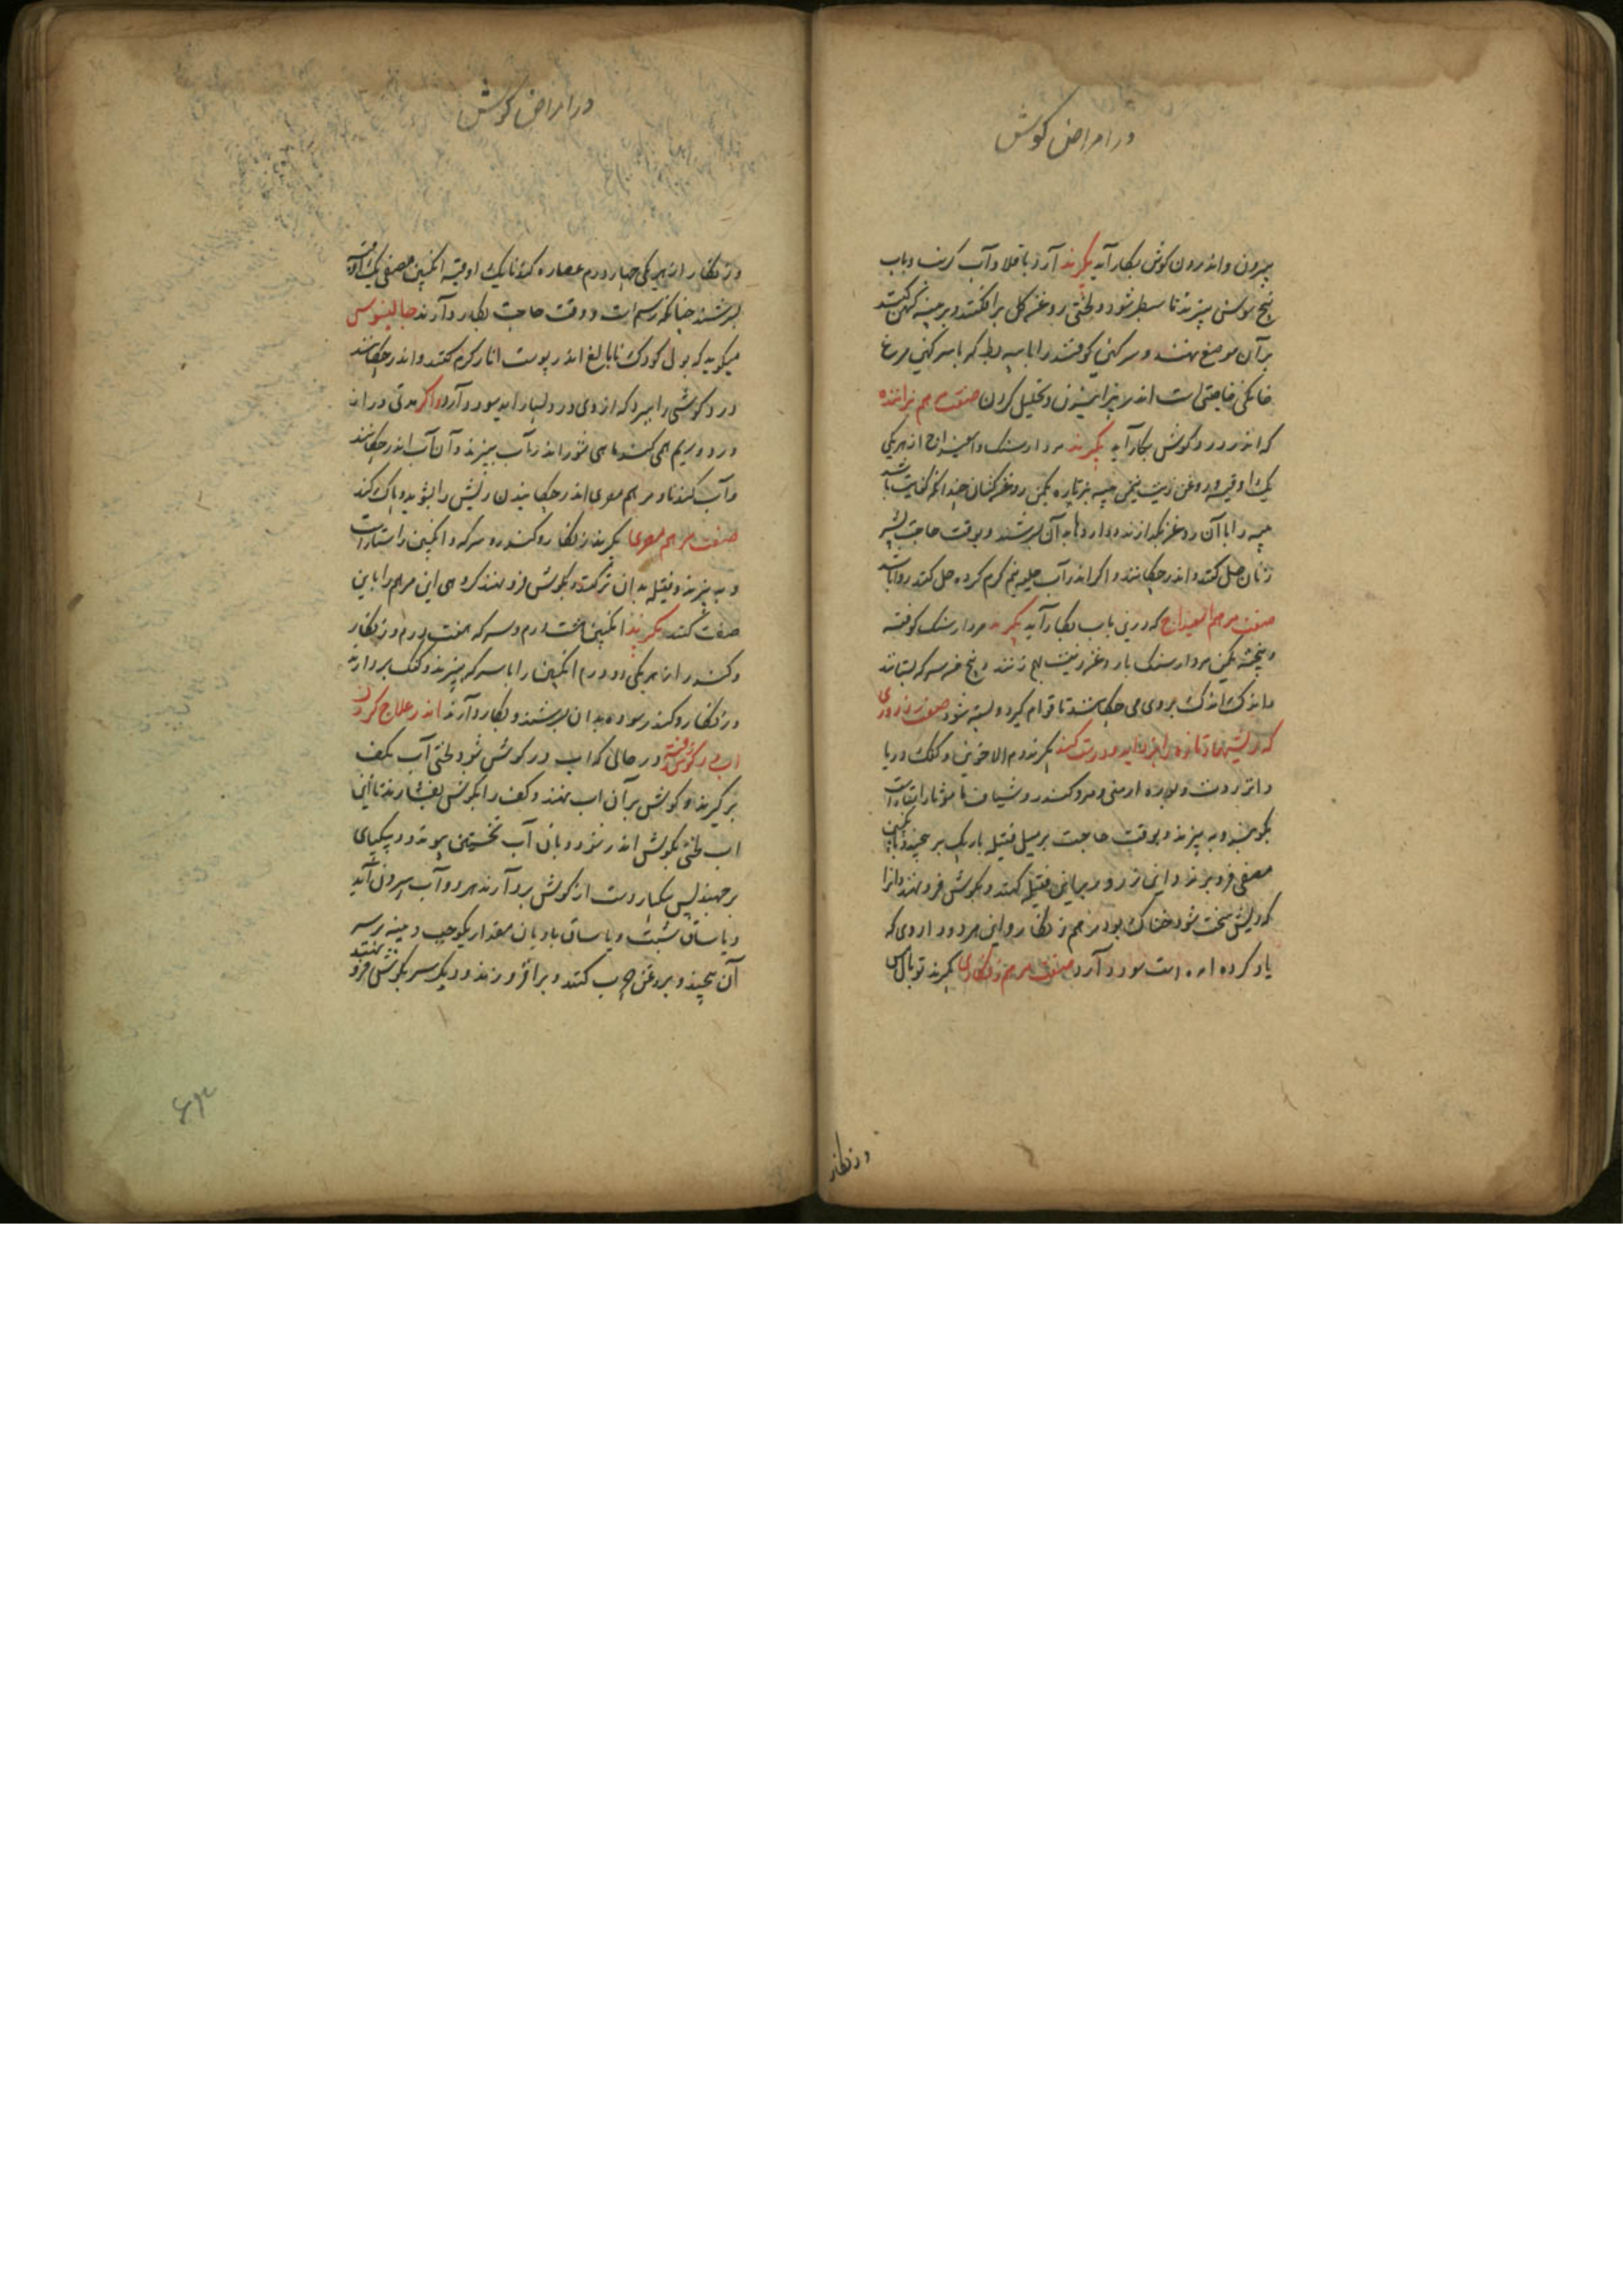 در امراض کوش
بیرون و اندرون کوش بکار آید بگیرند آرد باقلا و آب کرنب و باب
بیخ سوسن بپزند تا سطبر شود و لختی روغن کل برافکنند و بر
بر آن موضع نهند و سرکین کوفشند را با پیه بط کر با سرکین مرغ
خانکی خاصیتی است اندر پزانیدن و تحلیل کردن صفت مرهم
که اندر درد کوش بکار آید بگیرند مردارسنک و اسفیداج از هریکی
یک اوقیه و روغن زیت نیم من پیه بز تازه یکمن روغن کتان چندانکه کفایت باشد
پیه را با آن روغن بکدازند و داروها به آن بسرشند و بوقت حاجت بشیر
زنان حل کنند و اندر چکانند و اکر اندر آب حلبه نیم کرم کرده حل کنند روا باشد
صفت مرهم اسفیداج که درین باب بکار آید بگیرند مردارسنک کوفته
و بیخته یکمن مردارسنک با روغن زیت بهم زنند و پنج سرکه بستانند
و اندک اندک بر وی می چکانند تا قوام کیرد و بسته شود صفت زروری
که ریشهاء تازه را بزداید و درست کند بگیرند دم الاخوین و کفک دریا
و انزروت و بوره ارمنی و مر و کندر و شیاف مامیثا راستاراست
بکوبند و بپزند و بوقت حاجت بر میل فتیله باریک بر پیچند و بانکبین
مصفی فرو برند و این زرور بر این فتیله کنند و بکوش فرو نهند و انرا
که ریش سخت شوخناک بود مرهم زنکار و این هر دو داروی که
یاد کرده امده است سود دارد صفت مرهم زنکاری بگیرند توبال مس
و زنکار
در امراض کوش
و زنکار از هریکی چهار درم عصاره کندنا یک اوقیه انکبین مصفی یک اوقیه
بسرشند چنانکه رسم است و وقت حاجت بکار دارند جالینوس
میکوید که بول کودک نابالغ اندر پوست انار کرم کنند و اندر چکانند
درد کوشی را ببرد که از وی درد بسیار اید سود دارد و اکر مدتی دراز
درد و ریم همی کند ماهی شور اندر آب بپزند و آن آب اندر چکانند
و آب کندنا و مرهم مصری اندر چکانیدن ریش را بشوید و پاک کند
صفت مرهم مصری بگیرند زنکار و کندر و سرکه و انکبین راستاراست
و بپزند و فتیله بدان تر کنند و بکوش فرو نهند کروهی این مرهم را باین
صفت کنند بگیرند انکبین هشت درم و سرکه هفت درم و زنکار
و کندر از هر یکی دو درم انکبین را با سرکه بپزند و کفک بردارند
و زنکار و کندر سوده بدان بسرشند و بکار دارند اندر علاج کردن
اب در کوش رفته در حالی که اب در کوش شود لختی آب بکف
بر کیرند و کوش بر آن اب نهند و کف را بکوش بفشارند تا این
اب لختی بکوش اندر شود و بان آب نخستین پیوندد و بیکپای
برجهند پس بیکبار دست از کوش بردارند هر دو آب بیرون آید
و یا ساق شبت و یا ساق بادیان مقدار یکوجب و پنبه بر سر
آن پیچند و بروغن چرب کنند و برافروزند و دیکر سر بکوش فرو نهند